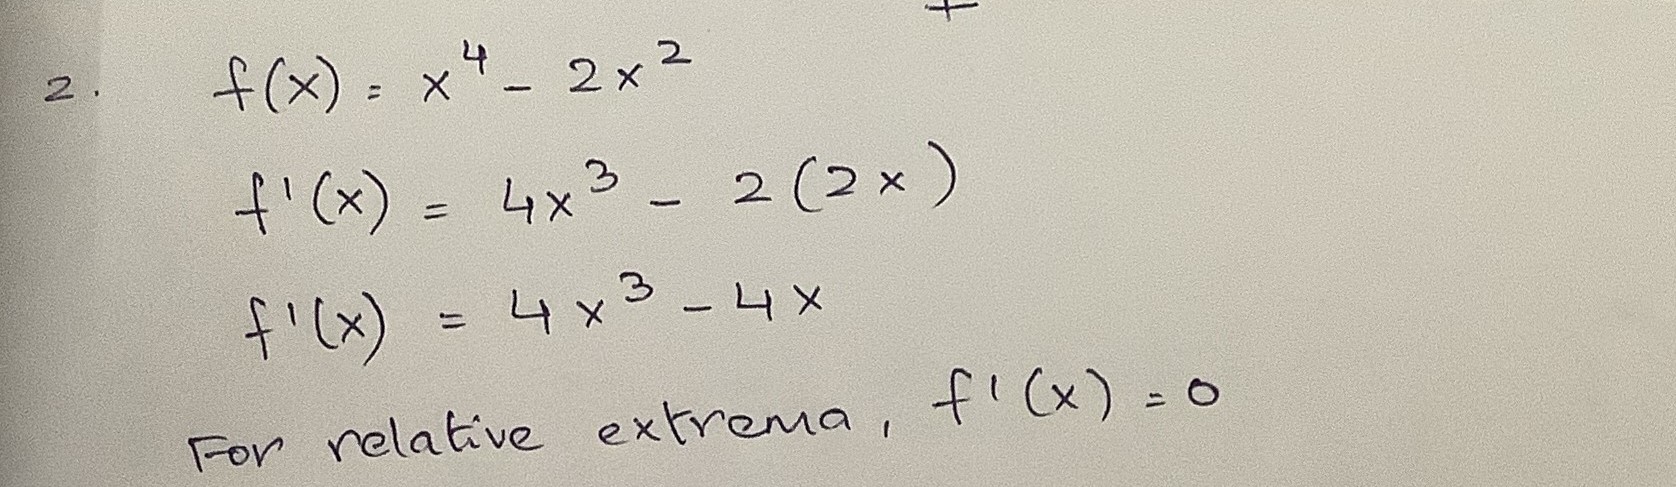 2. f(x) = x⁴ - 2x²
f'(x) = 4x³ - 2(2x)
f'(x) = 4x³ - 4x
For relative extrema, f'(x) = 0